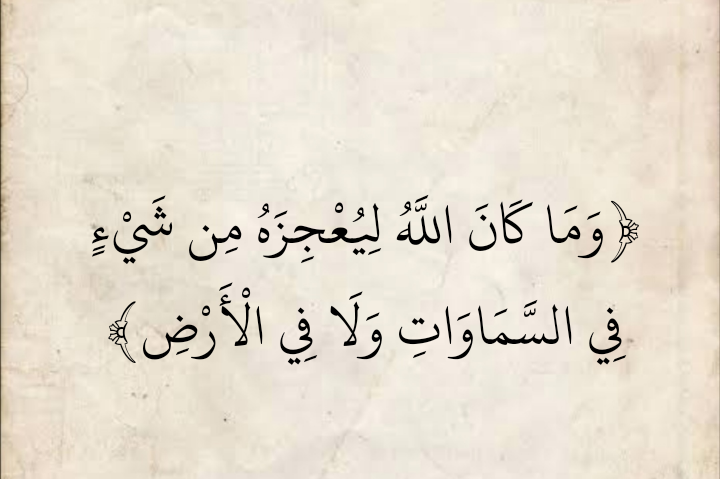 ﴿وَمَا كَانَ اللَّهُ لِيُعْجِزَهُ مِن شَيْءٍ
فِي السَّمَاوَاتِ وَلَا فِي الْأَرْضِ﴾